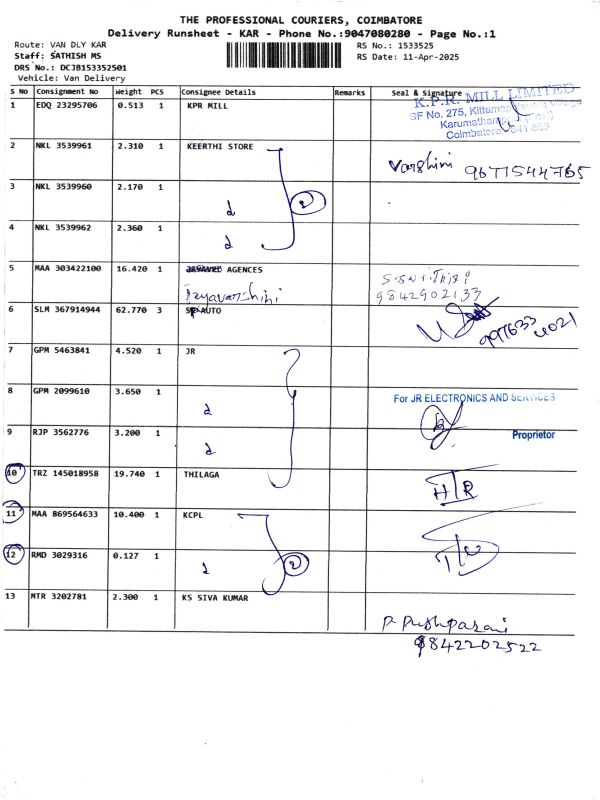 THE PROFESSIONAL COURIERS, COIMBATORE
Delivery Runsheet - KAR - Phone No.:9047080280 - Page No.:1
Route: VAN DLY KAR
Staff: SATHISH MS
DRS No.: DCJB153352501
Vehicle: Van Delivery
RS No.: 1533525
RS Date: 11-Apr-2025
S No Consignment No Weight PCS Consignee Details Remarks Seal & Signature
1 EDQ 23295706 0.513 1 KPR MILL
K.P.R. MILL LIMITED
SF No. 275, Kittampalayam Village
Karumathampatti (Post)
Coimbatore - 641 659
2 NKL 3539961 2.310 1 KEERTHI STORE
Varshini 9677544765
3 NKL 3539960 2.170 1
d 2
4 NKL 3539962 2.360 1
d
5 MAA 303422100 16.420 1 AGENCES
9842902133
6 SLM 367914944 62.770 3 AUTO
7 GPM 5463841 4.520 1 JR
8 GPM 2099610 3.650 1
d
For JR ELECTRONICS AND SERVICES
9 RJP 3562776 3.200 1
d
Proprietor
10 TRZ 145018958 19.740 1 THILAGA
11 MAA 869564633 10.400 1 KCPL
12 RMD 3029316 0.127 1
d 2
13 MTR 3202781 2.300 1 KS SIVA KUMAR
P Pushparani
9842202522